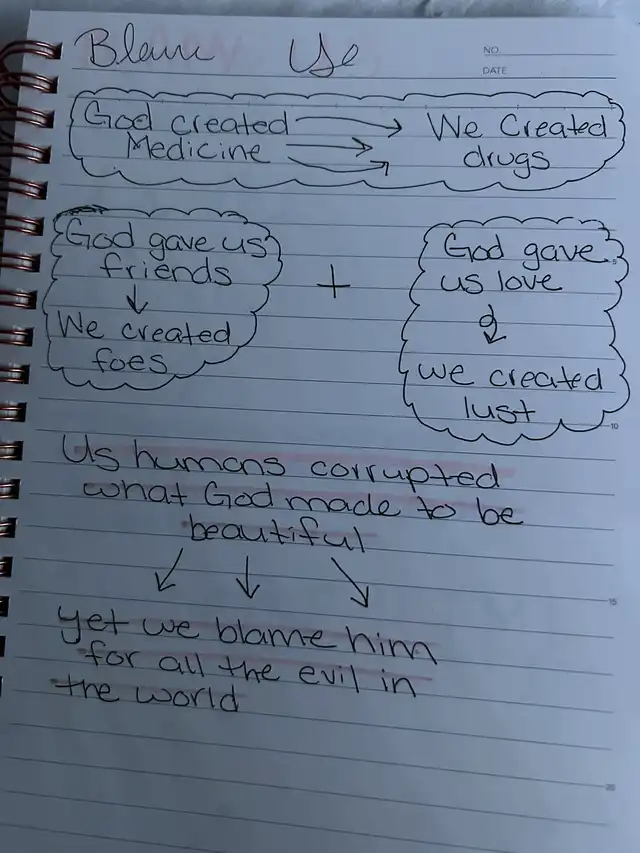 Blam Us
NO.
DATE
God created
Medicine
We Created
drugs
God gave us
friends
We created
foes
+
God gave
us love
we created
lust
Us humans corrupted
what God made to be
beautiful
yet we blame him
for all the evil in
the world
5
10
15
20